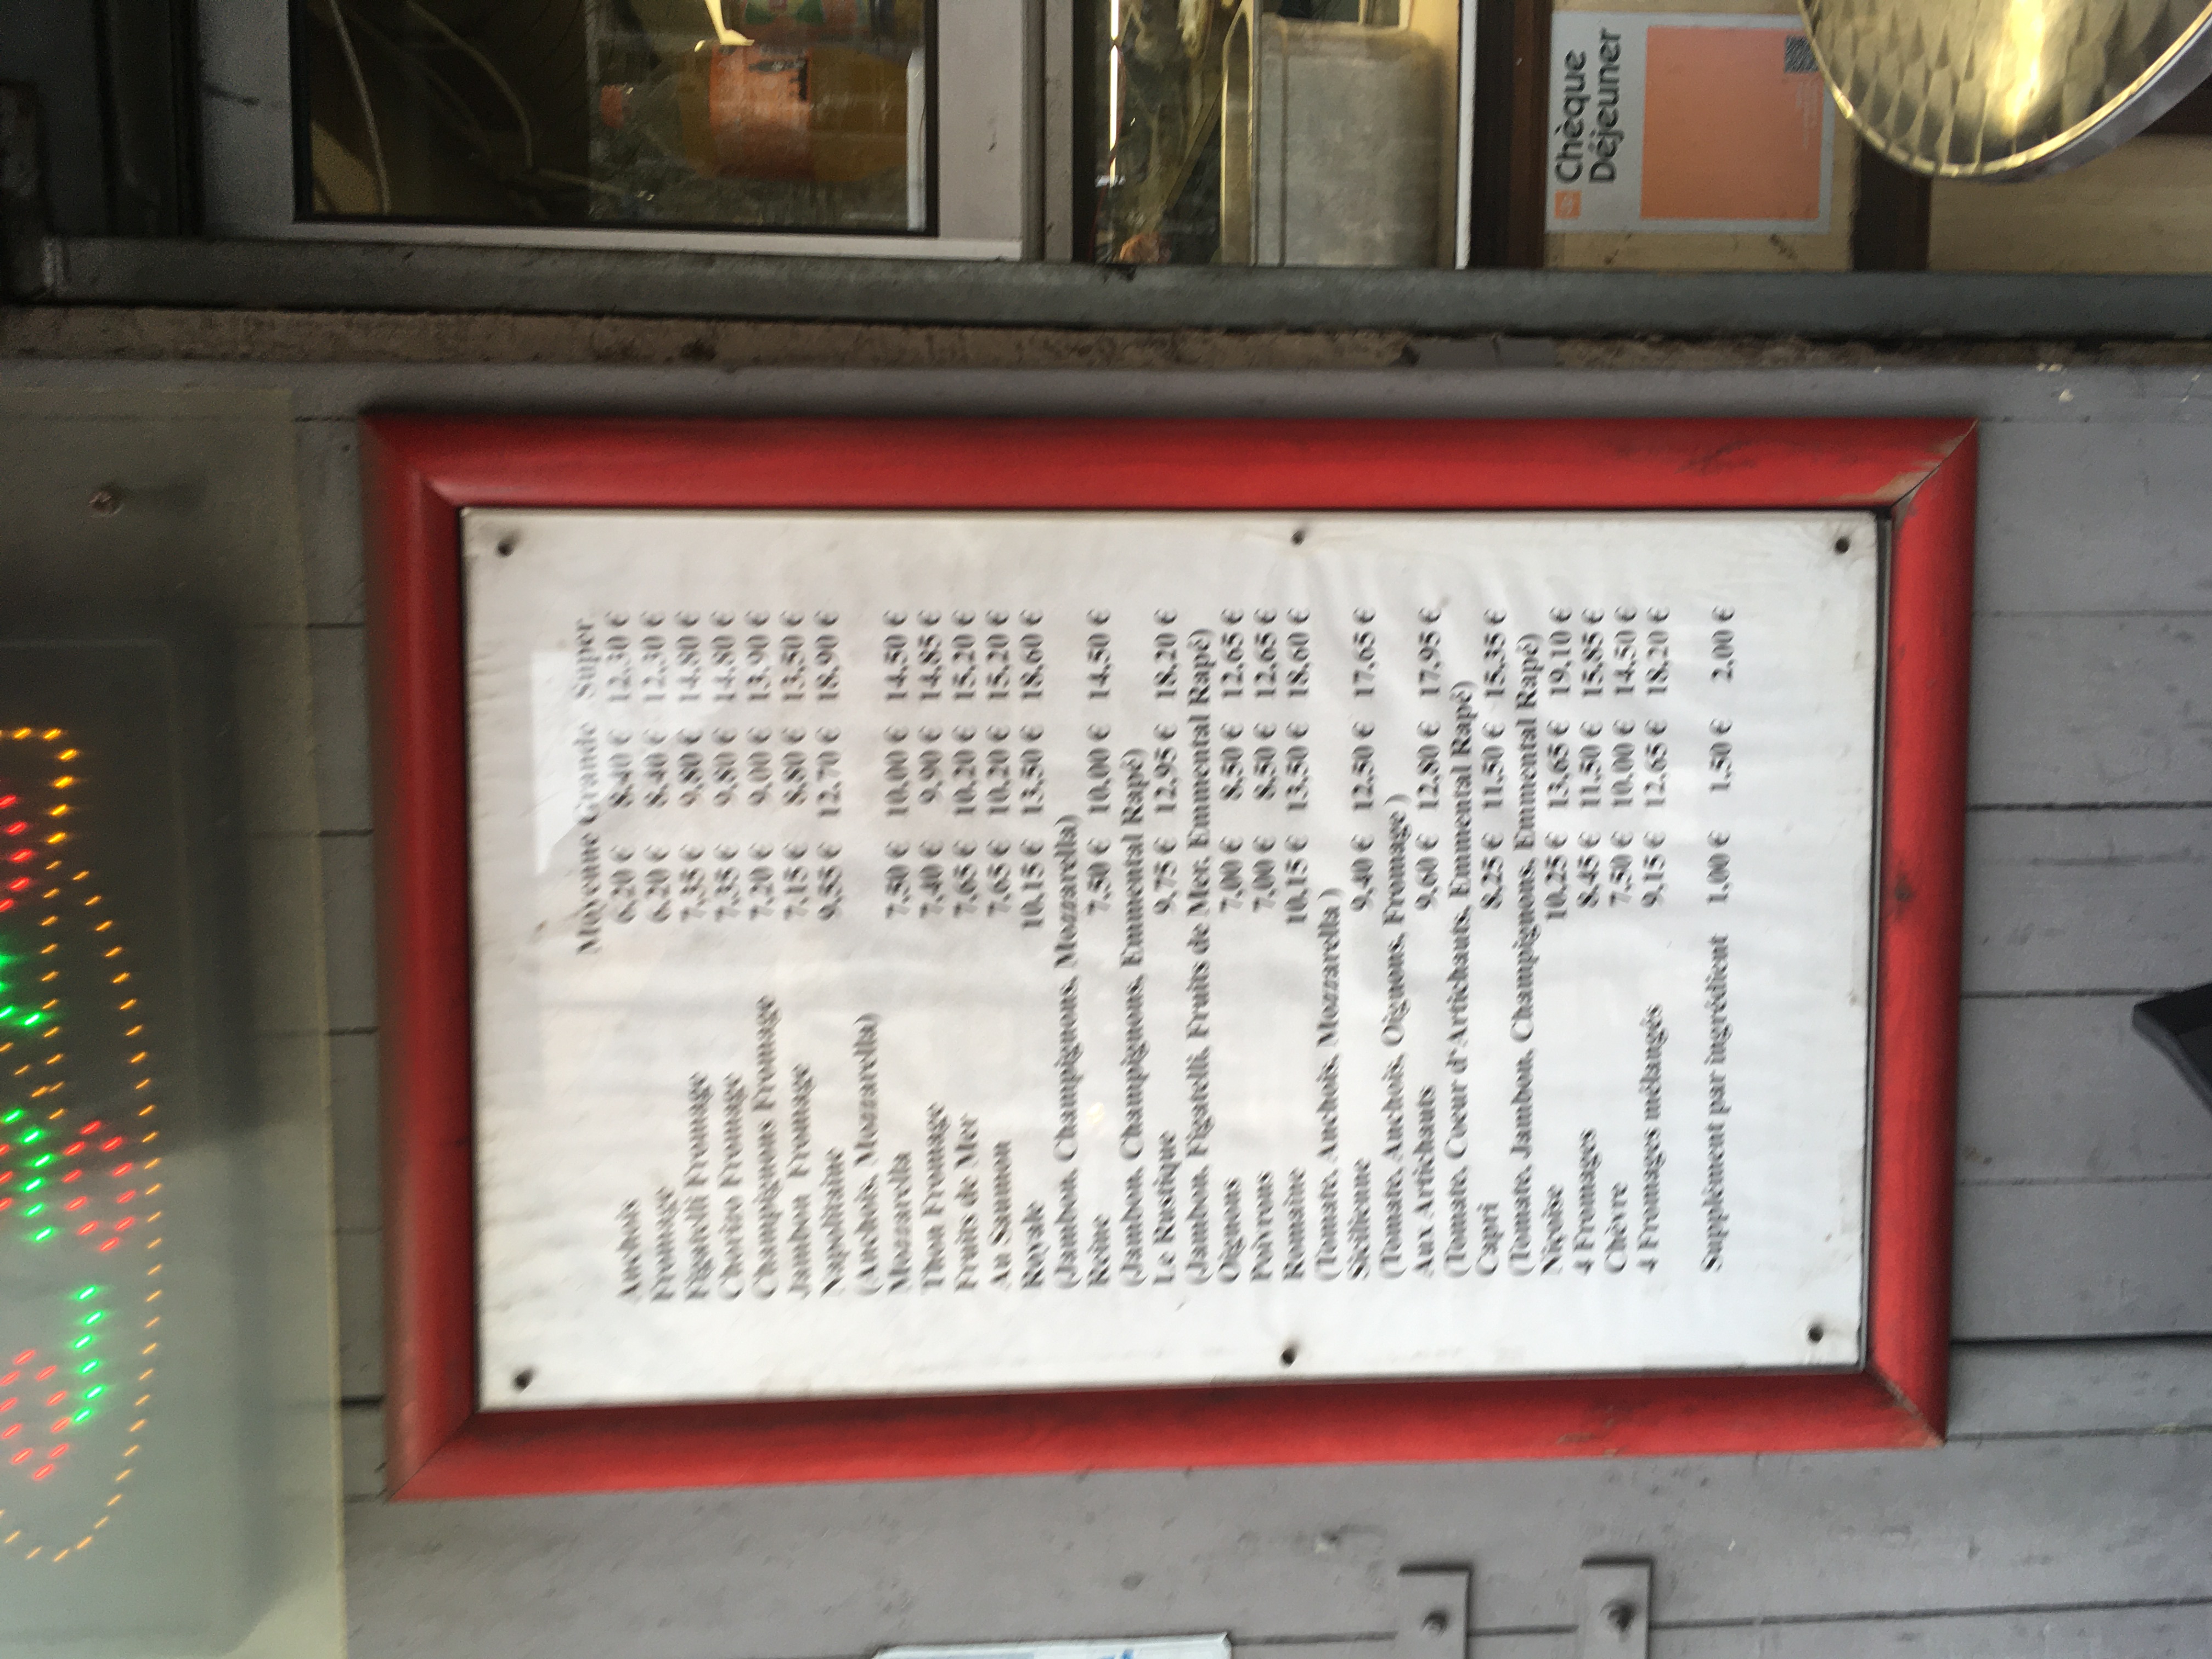 Chèque
Déjeuner
Moyenne Grande Super
Anchois 6,20 € 8,40 € 12,30 €
Fromage 6,20 € 8,40 € 12,30 €
Figatelli Fromage 7,35 € 9,80 € 14,80 €
Chorizo Fromage 7,35 € 9,80 € 14,80 €
Champignons Fromage 7,20 € 9,00 € 13,90 €
Jambon Fromage 7,15 € 8,80 € 13,50 €
Napolitaine 9,55 € 12,70 € 18,90 €
(Anchois, Mozzarella)
Mozzarella 7,50 € 10,00 € 14,50 €
Thon Fromage 7,40 € 9,90 € 14,85 €
Fruits de Mer 7,65 € 10,20 € 15,20 €
Au Saumon 7,65 € 10,20 € 15,20 €
Royale 10,15 € 13,50 € 18,60 €
(Jambon, Champignons, Mozzarella)
Reine 7,50 € 10,00 € 14,50 €
(Jambon, Champignons, Emmental Rapé)
Le Rustique 9,75 € 12,95 € 18,20 €
(Jambon, Figatelli, Fruits de Mer, Emmental Rapé)
Oignons 7,00 € 8,50 € 12,65 €
Poivrons 7,00 € 8,50 € 12,65 €
Romaine 10,15 € 13,50 € 18,60 €
(Tomate, Anchois, Mozzarella )
Sicilienne 9,40 € 12,50 € 17,65 €
(Tomate, Anchois, Oignons, Fromage )
Aux Artichauts 9,60 € 12,80 € 17,95 €
(Tomate, Coeur d'Artichauts, Emmental Rapé)
Capri 8,25 € 11,50 € 15,35 €
(Tomate, Jambon, Champignons, Emmental Rapé)
Niçoise 10,25 € 13,65 € 19,10 €
4 Fromages 8,45 € 11,50 € 15,85 €
Chèvre 7,50 € 10,00 € 14,50 €
4 Fromages mélangés 9,15 € 12,65 € 18,20 €
Supplément par ingrédient 1,00 € 1,50 € 2,00 €